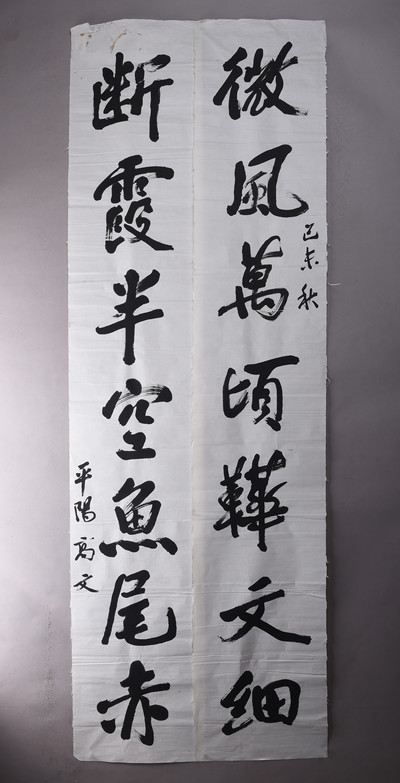 微風萬頃鞾文細
己未秋
断霞半空魚尾赤
平陽高文